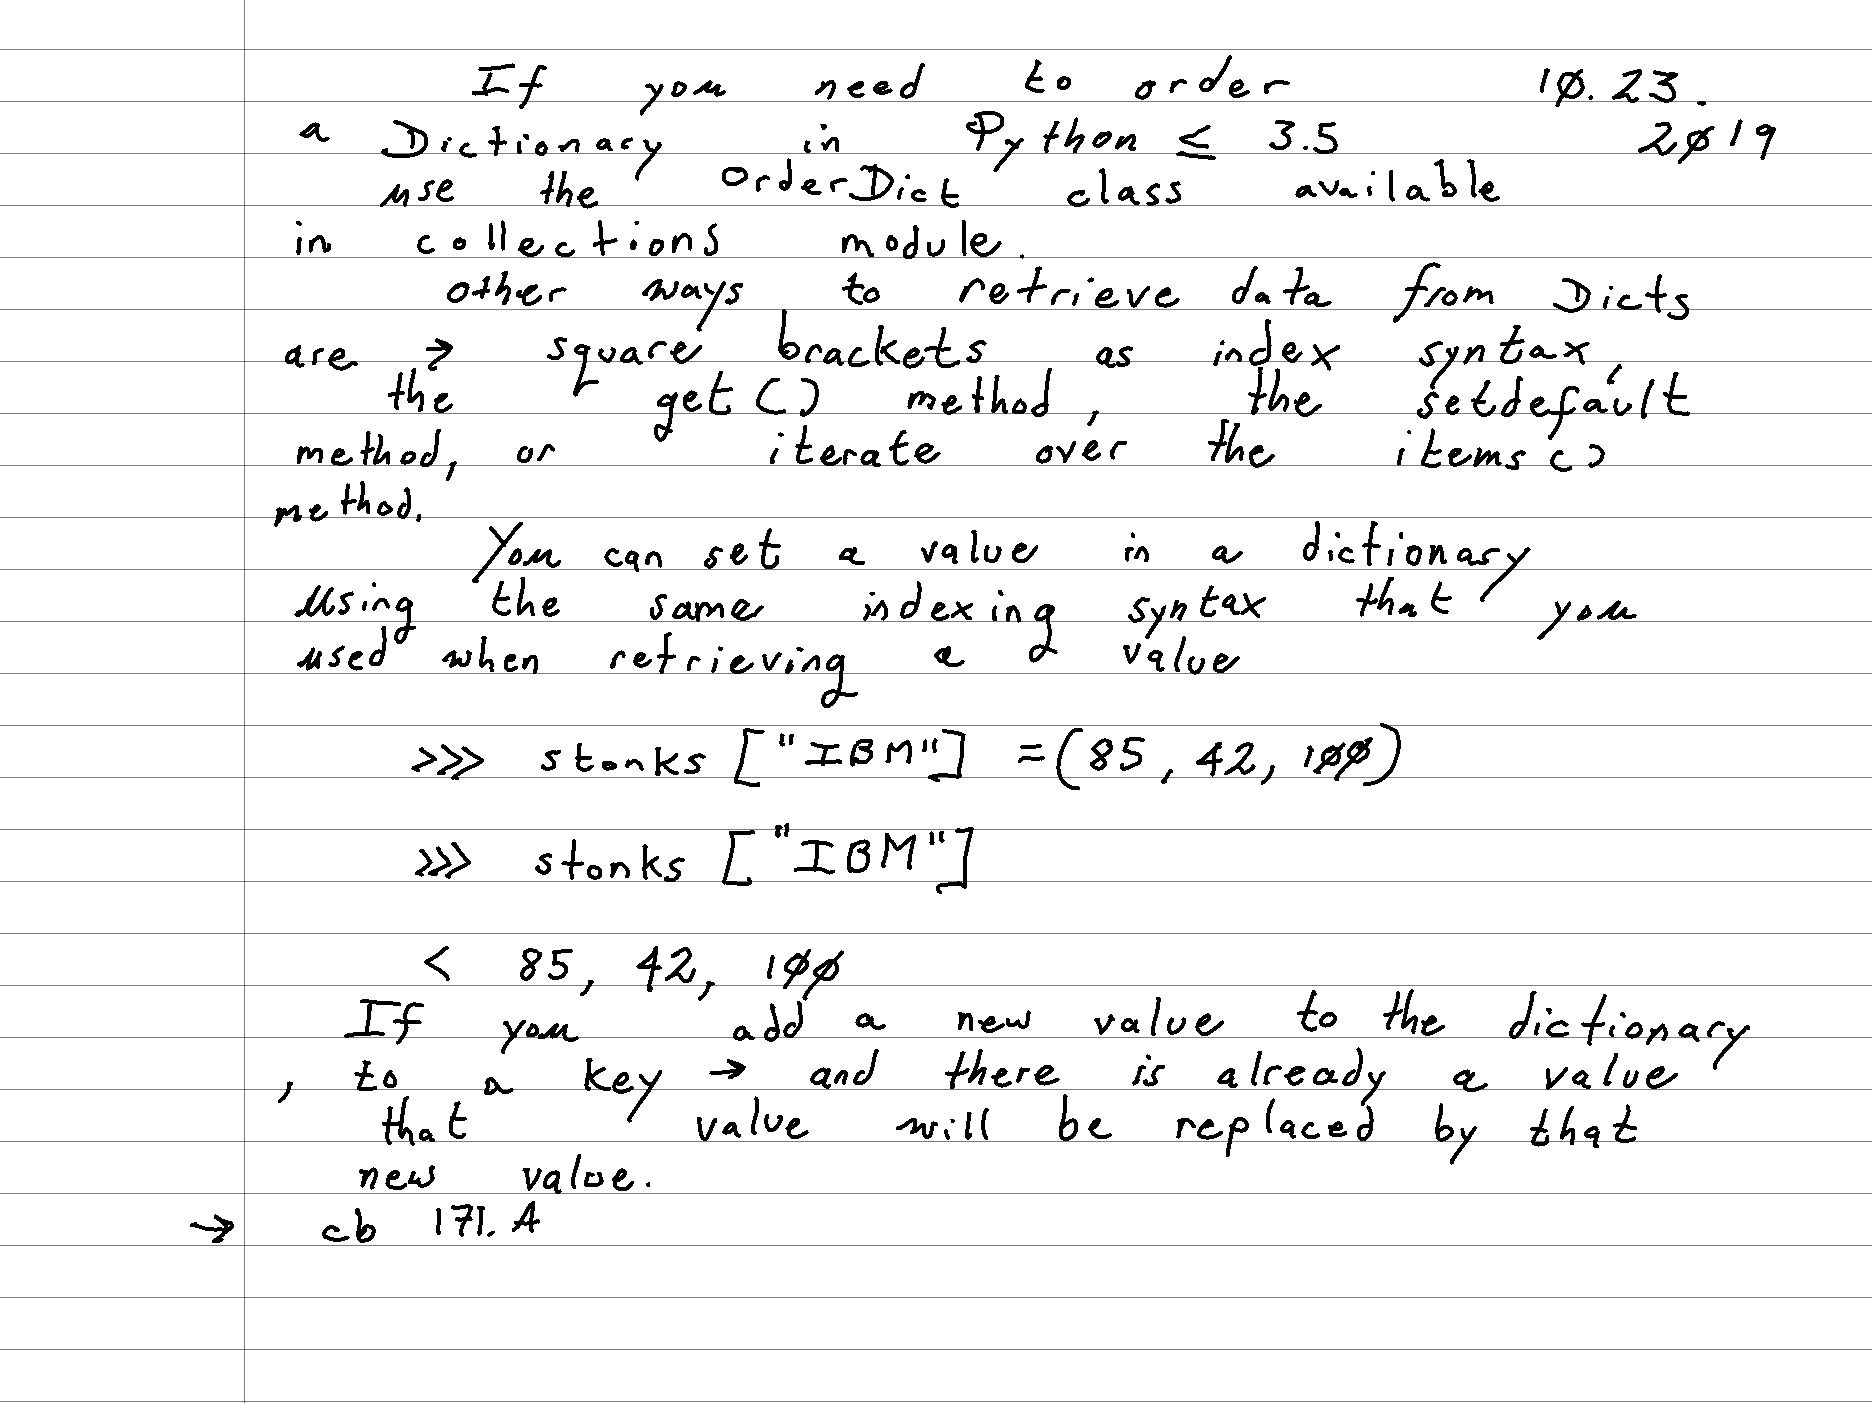 If you need to order 10.23.
a Dictionary in Python ≤ 3.5 2019
use the OrderDict class available
in collections module.
other ways to retrieve data from Dicts
are → square brackets as index syntax,
the get() method, the setdefault
method, or iterate over the items()
method.
You can set a value in a dictionary
using the same indexing syntax that you
used when retrieving a value
>>> stonks ["IBM"] = (85, 42, 100)
>>> stonks ["IBM"]
< 85, 42, 100
If you add a new value to the dictionary
, to a key → and there is already a value
that value will be replaced by that
new value.
→ cb 171. A